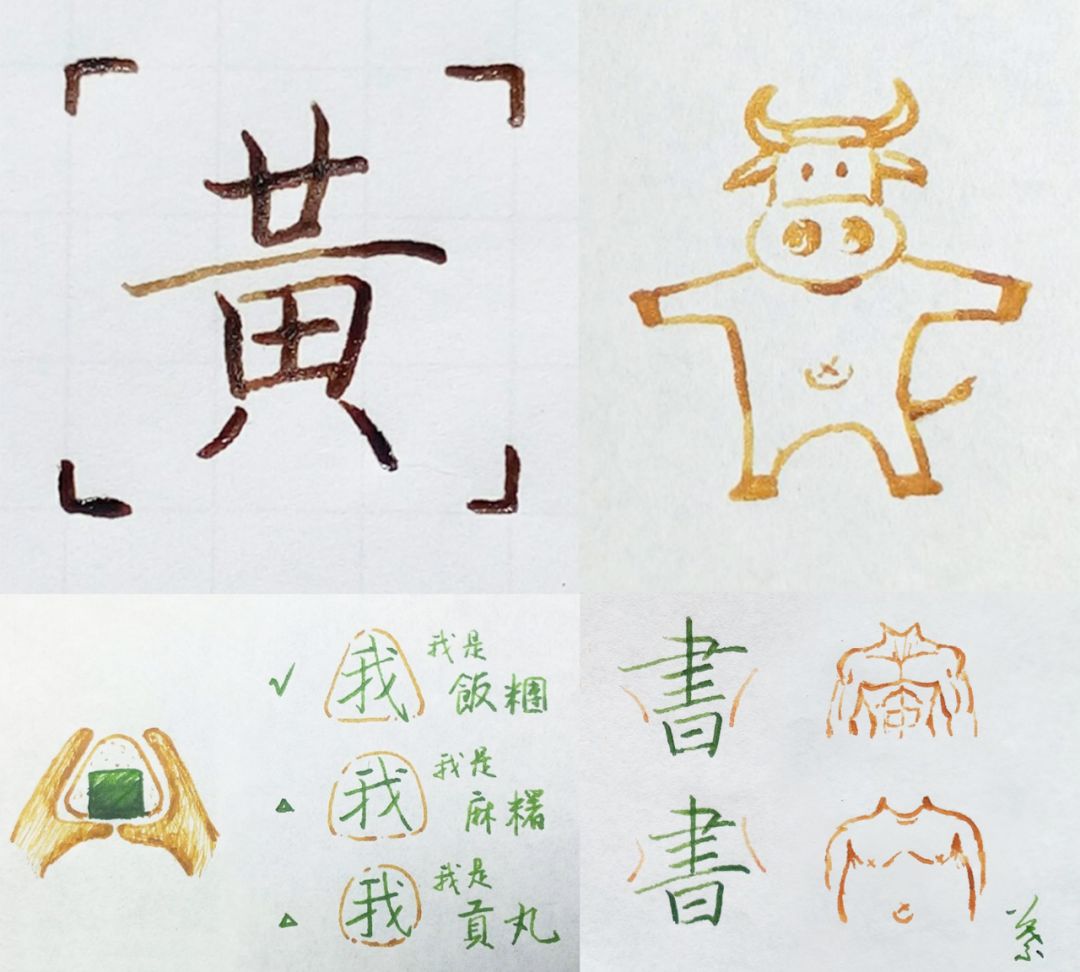 黃
我
我是
飯糰
我
我是
麻糬
我
我是
貢丸
書
書